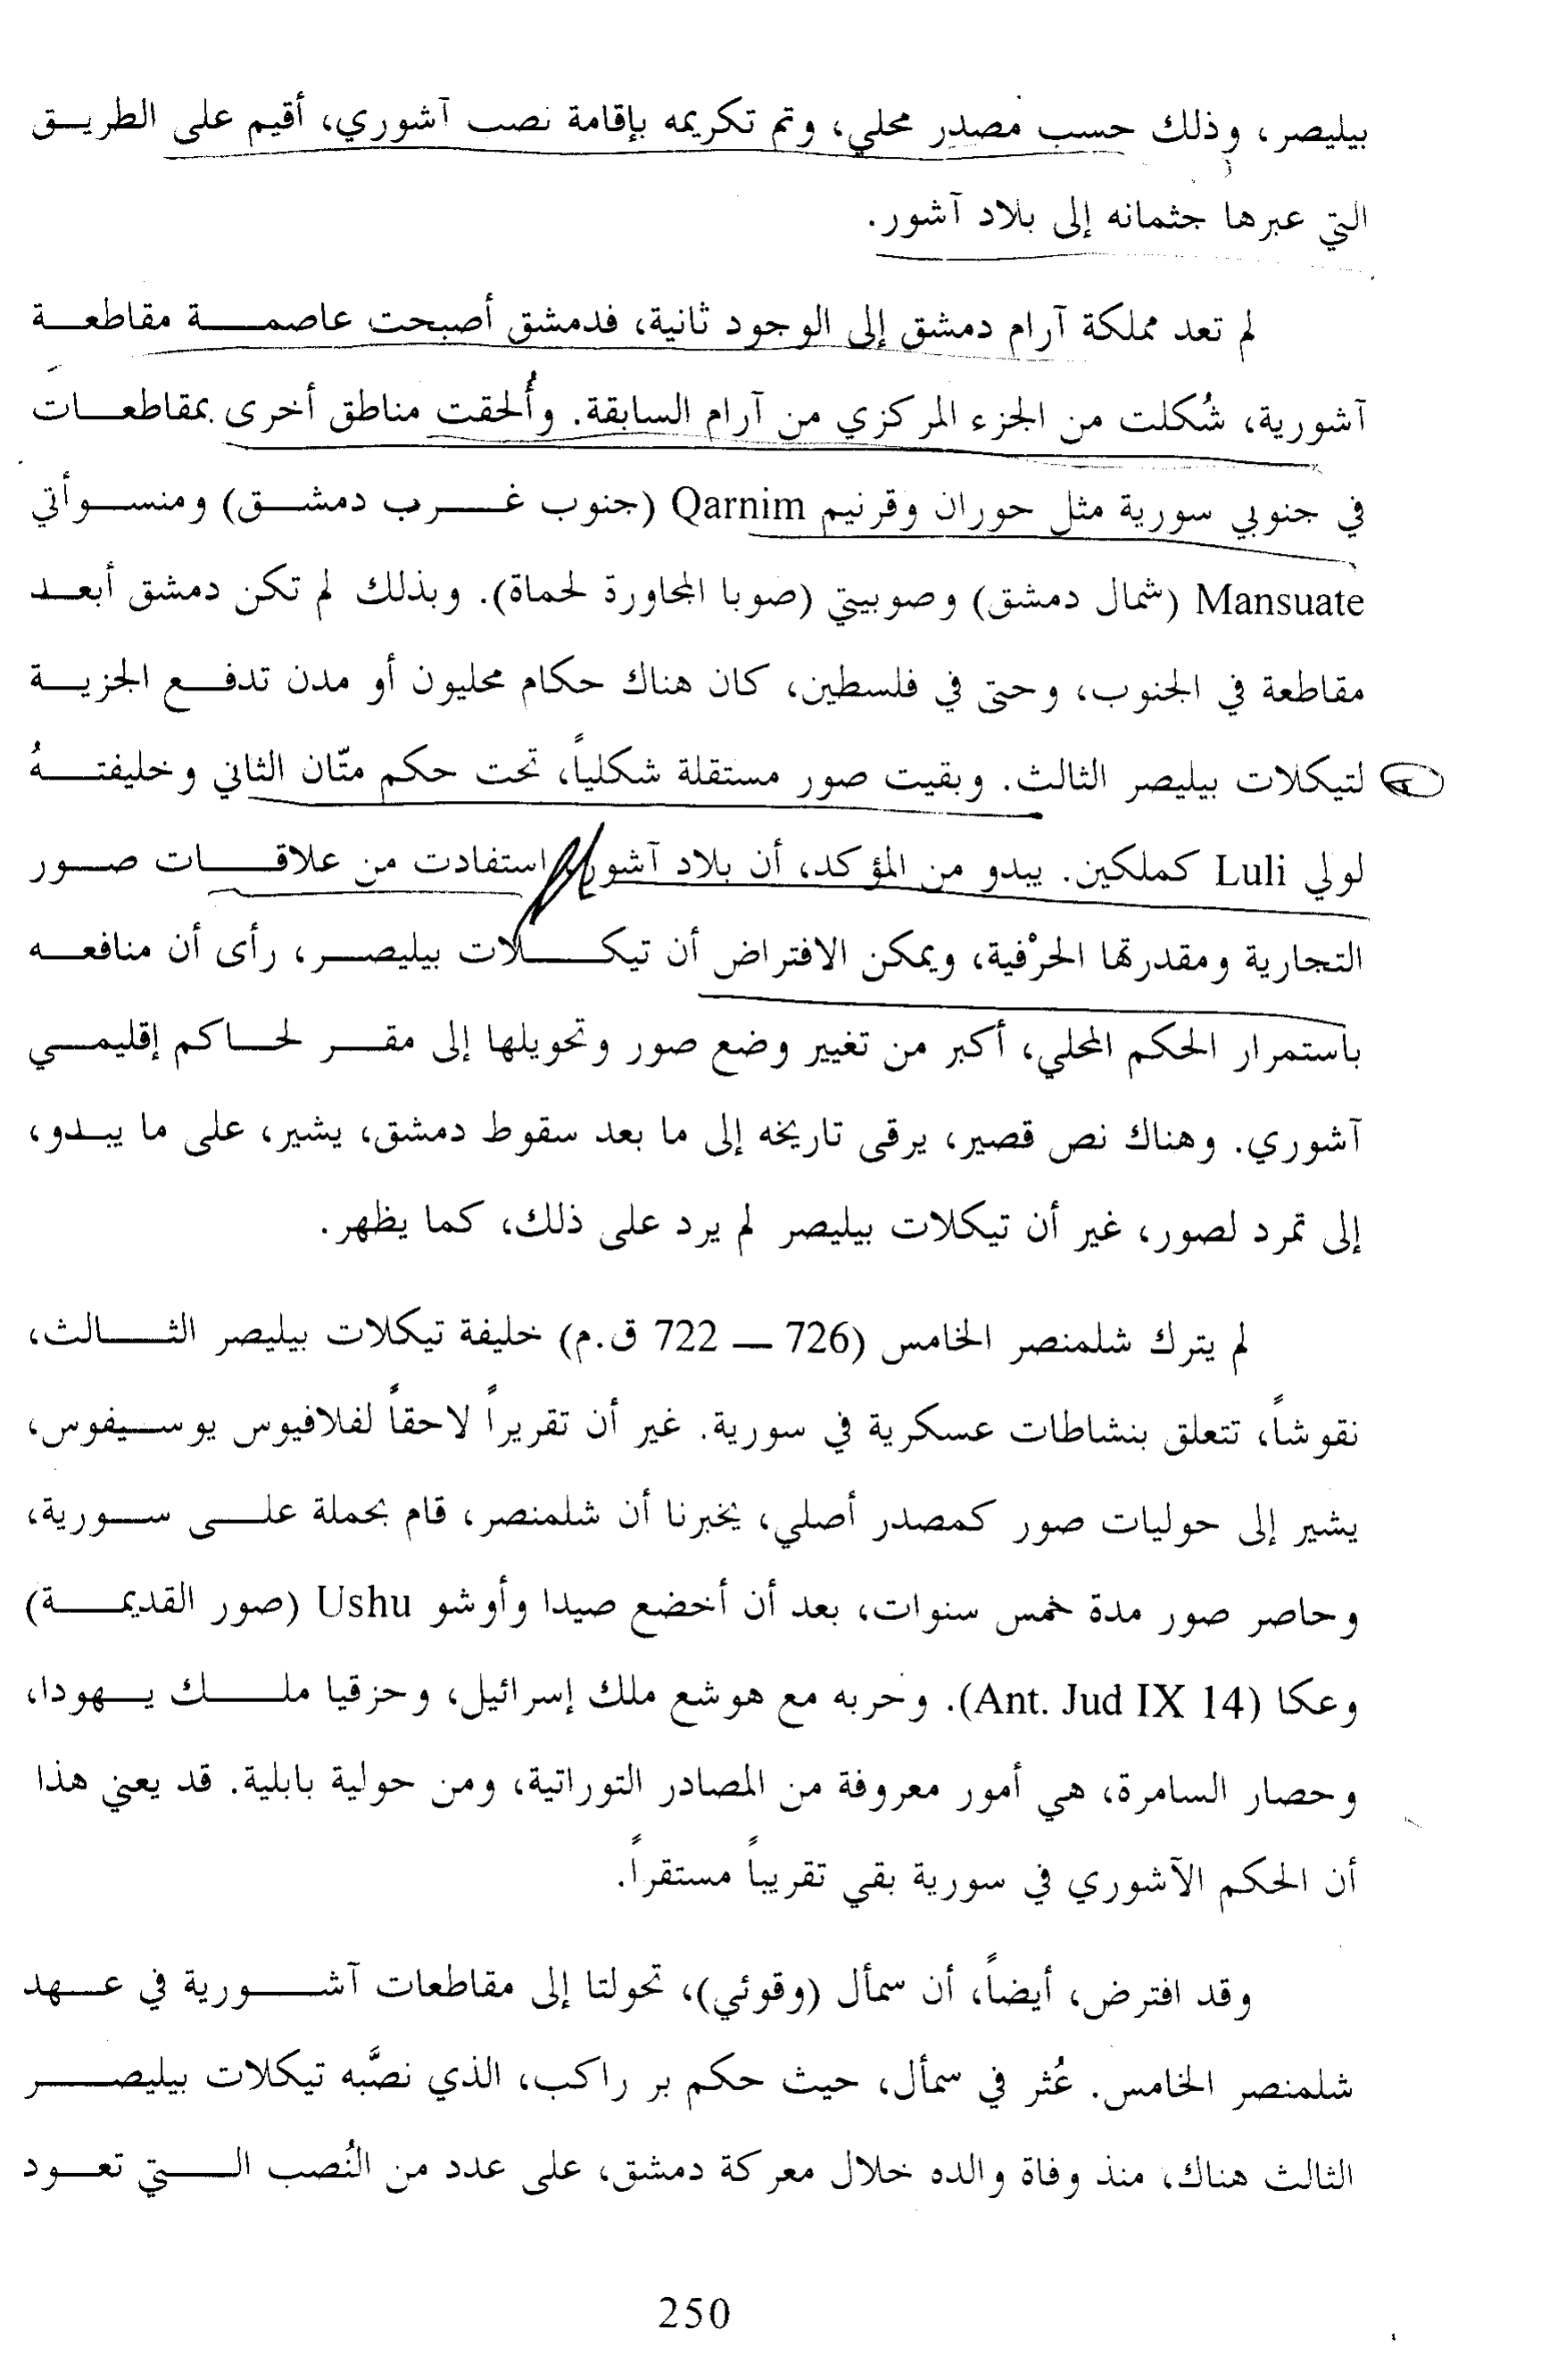 بيليصر، وذلك حسب مصدر محلي، وتم تكريمه بإقامة نصب آشوري، أقيم على الطريق
التي عبرها جثمانه إلى بلاد آشور.
لم تعد مملكة آرام دمشق إلى الوجود ثانية، فدمشق أصبحت عاصمة مقاطعة
آشورية، شُكلت من الجزء المركزي من آرام السابقة. وأُلحقت مناطق أخرى بمقاطعات
في جنوبي سورية مثل حوران وقرنيم Qarnim (جنوب غرب دمشق) ومنسوأتي
Mansuate (شمال دمشق) وصوبيتي (صوبا المجاورة لحماة). وبذلك لم تكن دمشق أبعد
مقاطعة في الجنوب، وحتى في فلسطين، كان هناك حكام محليون أو مدن تدفع الجزية
لتيكلات بيليصر الثالث. وبقيت صور مستقلة شكلياً، تحت حكم متّان الثاني وخليفتهُ
لولي Luli كملكين. يبدو من المؤكد، أن بلاد آشور استفادت من علاقات صور
التجارية ومقدرتها الحرْفية، ويمكن الافتراض أن تيكلات بيليصر، رأى أن منافعه
باستمرار الحكم المحلي، أكبر من تغيير وضع صور وتحويلها إلى مقر لحاكم إقليمي
آشوري. وهناك نص قصير، يرقى تاريخه إلى ما بعد سقوط دمشق، يشير، على ما يبدو،
إلى تمرد لصور، غير أن تيكلات بيليصر لم يرد على ذلك، كما يظهر.
لم يترك شلمنصر الخامس (726 — 722 ق.م) خليفة تيكلات بيليصر الثالث،
نقوشاً، تتعلق بنشاطات عسكرية في سورية. غير أن تقريراً لاحقاً لفلافيوس يوسيفوس،
يشير إلى حوليات صور كمصدر أصلي، يخبرنا أن شلمنصر، قام بحملة على سورية،
وحاصر صور مدة خمس سنوات، بعد أن أخضع صيدا وأوشو Ushu (صور القديمة)
وعكا (Ant. Jud IX 14). وحربه مع هوشع ملك إسرائيل، وحزقيا ملك يهودا،
وحصار السامرة، هي أمور معروفة من المصادر التوراتية، ومن حولية بابلية. قد يعني هذا
أن الحكم الآشوري في سورية بقي تقريباً مستقراً.
وقد افترض، أيضاً، أن سمأل (وقوئي)، تحولتا إلى مقاطعات آشورية في عهد
شلمنصر الخامس. عُثر في سمأل، حيث حكم بر راكب، الذي نصَّبه تيكلات بيليصر
الثالث هناك، منذ وفاة والده خلال معركة دمشق، على عدد من النُصب التي تعود
250